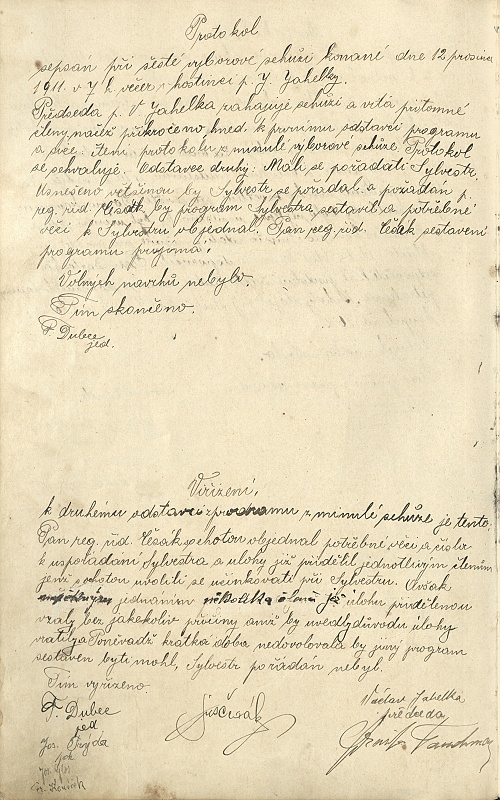 Protokol
sepsán při šesté výborové schůzi konané dne 12 prosince
1911. v 7 h. večer v hostinci p. J. Jahelky.
Předseda p. V Jahelka zahajuje schůzi a vítá přítomné
členy, načež přikročeno hned k prvnímu odstavci programu
a sice: čtení protokolu z minulé výborové schůze. Protokol
se schvaluje. Odstavec druhý: Má-li se pořádati Sylvestr.
Usnešeno většinou by Sylvestr se pořádal a požádán p.
reg. řid. Čésák by program Sylvestra sestavil a potřebné
věci k Sylvestru objednal. Pan reg. řid. Čésák sestavení
programu přijímá.
Volných navrhů nebylo.
Tím skončeno.
F. Dubec
jed.
Vyřízení.
k druhému odstavci programu z minulé schůze je tento
Pan reg. řid. Čésák ochotně objednal potřebné věci a čísla
k uspořádání Sylvestra a ulohy již přidělil jednotlivým členům
jenž ochotou uvolili se učinkovati při Sylvestru. Avšak
jednáním několika členů již úlohu přidělenou
vzaly bez jakekoliv příčiny aniž by uvedly důvodu úlohy
vratily a Poněvadž krátká doba nedovolovala by jiný program
sestaven býti mohl, Sylvestr pořádán nebyl.
Tím vyřízeno.
F. Dubec
jed
Václav Jahelka
předseda
Jos. Frýda
Fr. Koníček